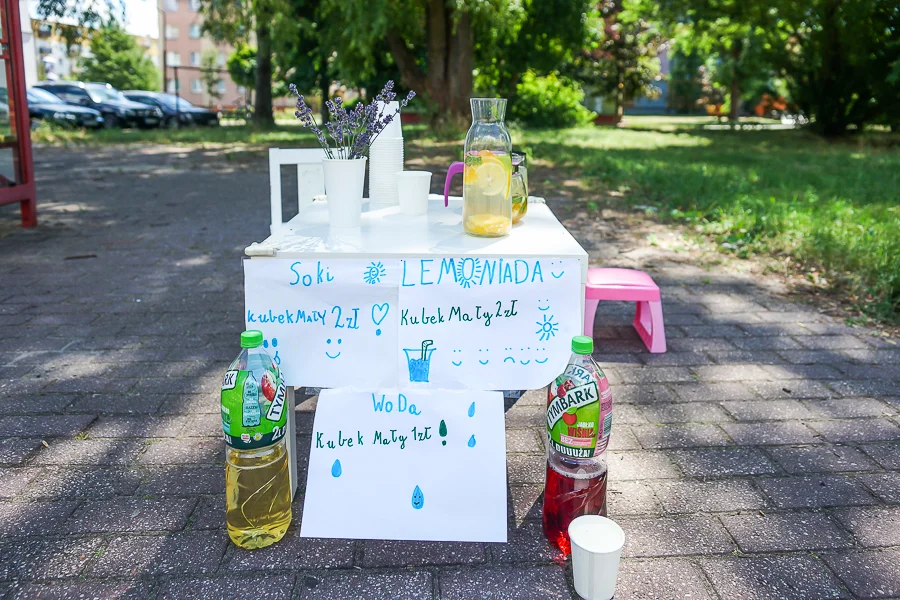 Soki
Kubek MAŁY 2zł
LEMONIADA
Kubek Mały 2zł
WoDa
Kubek Mały 1zł!
TYMBARK
TYMBARK
JABŁKO
WIŚNIA
DUUUŻA!